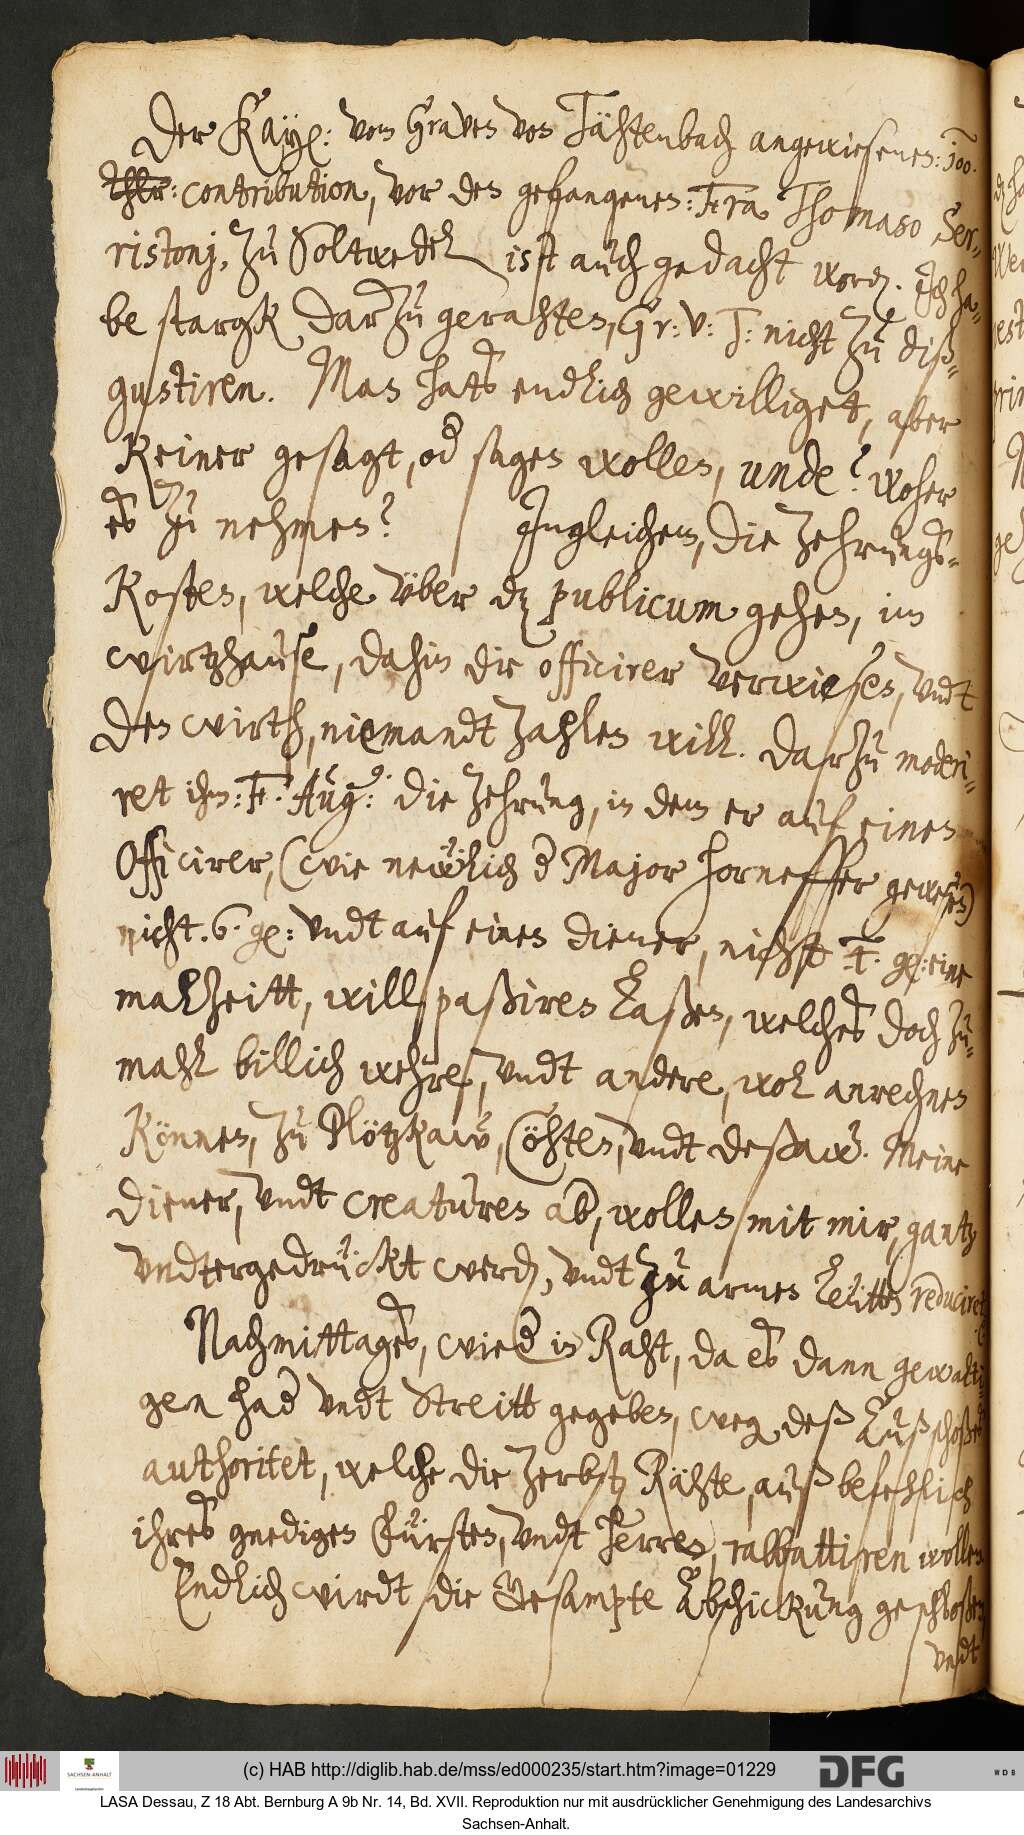 Der Kayß: vom Graven von Tähtenbach angewiesenen: 300.
thlr: contribution, vor den gefangenen: Fra Thomaso Ser„
ristorj, zu Soltwedel ist auch gedacht word. Ich ha„
be starck darzu gerahten, Gr: v: T: nicht zu diß„
gustiren. Man hats endlich gewilliget, aber
Keiner gesagt, od sagen wollen, unde? woher
es zu nehmen? Ingleichem, die Zehrungs„
Kosten, welche über dz publicum gehen, im
wirtzhause, dahin die officirer verwiesen, vndt
den wirth, niemandt zahlen will. Darzu moderi„
ret ihm: F. Aug: die Zehrung, in dem er auf einen
Officirer, (wie newlich d Major Horneffer gewesen)
nicht. 6. gl: vndt auf einen diener, nichst 4. gl: eine
mahlzeitt, will paßiren laßen, welches doch zu„
mahl billich wehre, vndt andere, wol anrechnen
Können, zu Plötzkaw, Cöhten, vndt deßaw. Meine
diener, vndt creaturen ab, wollen mit mir, gantz
vndtergedrückt werd, vndt zu armen leütten reduciret
Nachmittages, wied in Raht, da es dann gewalti„
gen had vndt streitt gegeben, weg deß Außschoßes
authoritet, welche die Zerbst Rähte, auß befehlich
ihres gnedigen Fürsten, vndt Herren, rabbattiren wollen
Endlich wirdt die Gesampte Abschickung geschloßen,
vndt
(c) HAB http://diglib.hab.de/mss/ed000235/start.htm?image=01229
SACHSEN-ANHALT
DFG
WDB
LASA Dessau, Z 18 Abt. Bernburg A 9b Nr. 14, Bd. XVII. Reproduktion nur mit ausdrücklicher Genehmigung des Landesarchivs
Sachsen-Anhalt.